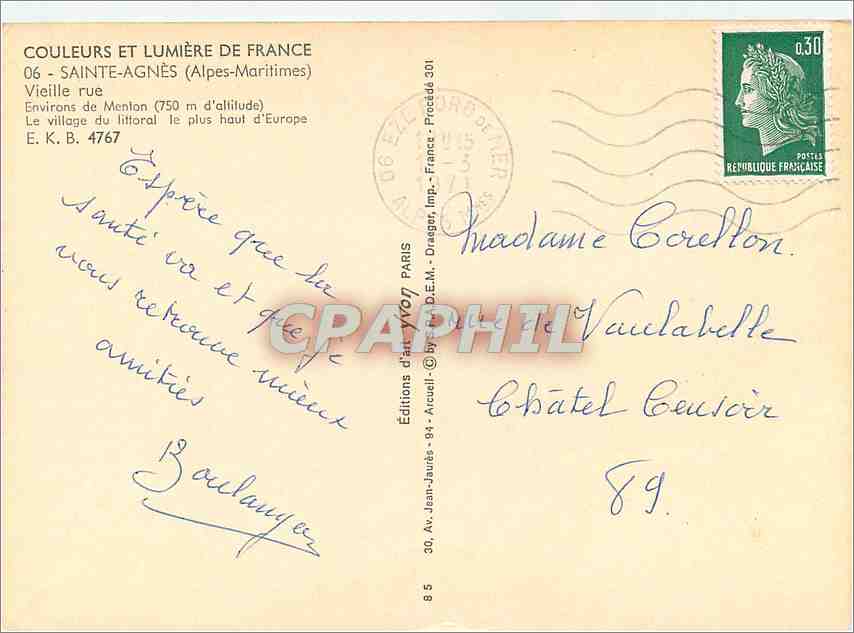 COULEURS ET LUMIÈRE DE FRANCE
06 - SAINTE-AGNÈS (Alpes-Maritimes)
Vieille rue
Environs de Menton (750 m d'altitude)
Le village du littoral le plus haut d'Europe
E. K. B. 4767
Espère que la
santé va et que je
vous retrouve mieux
amitiés
Boulanger
85 30, Av. Jean-Jaurès - 94 - Arcueil - © by S.P.A.D.E.M. - Draeger, Imp. - France - Procédé 301
Éditions d'art yvon PARIS
06 EZE BORD DE MER
15
-3
1971
ALPES
0,30
POSTES
RÉPUBLIQUE FRANÇAISE
Madame Corellon.
rue de Vaulabelle
Châtel Censoir
89.
CPAPHIL